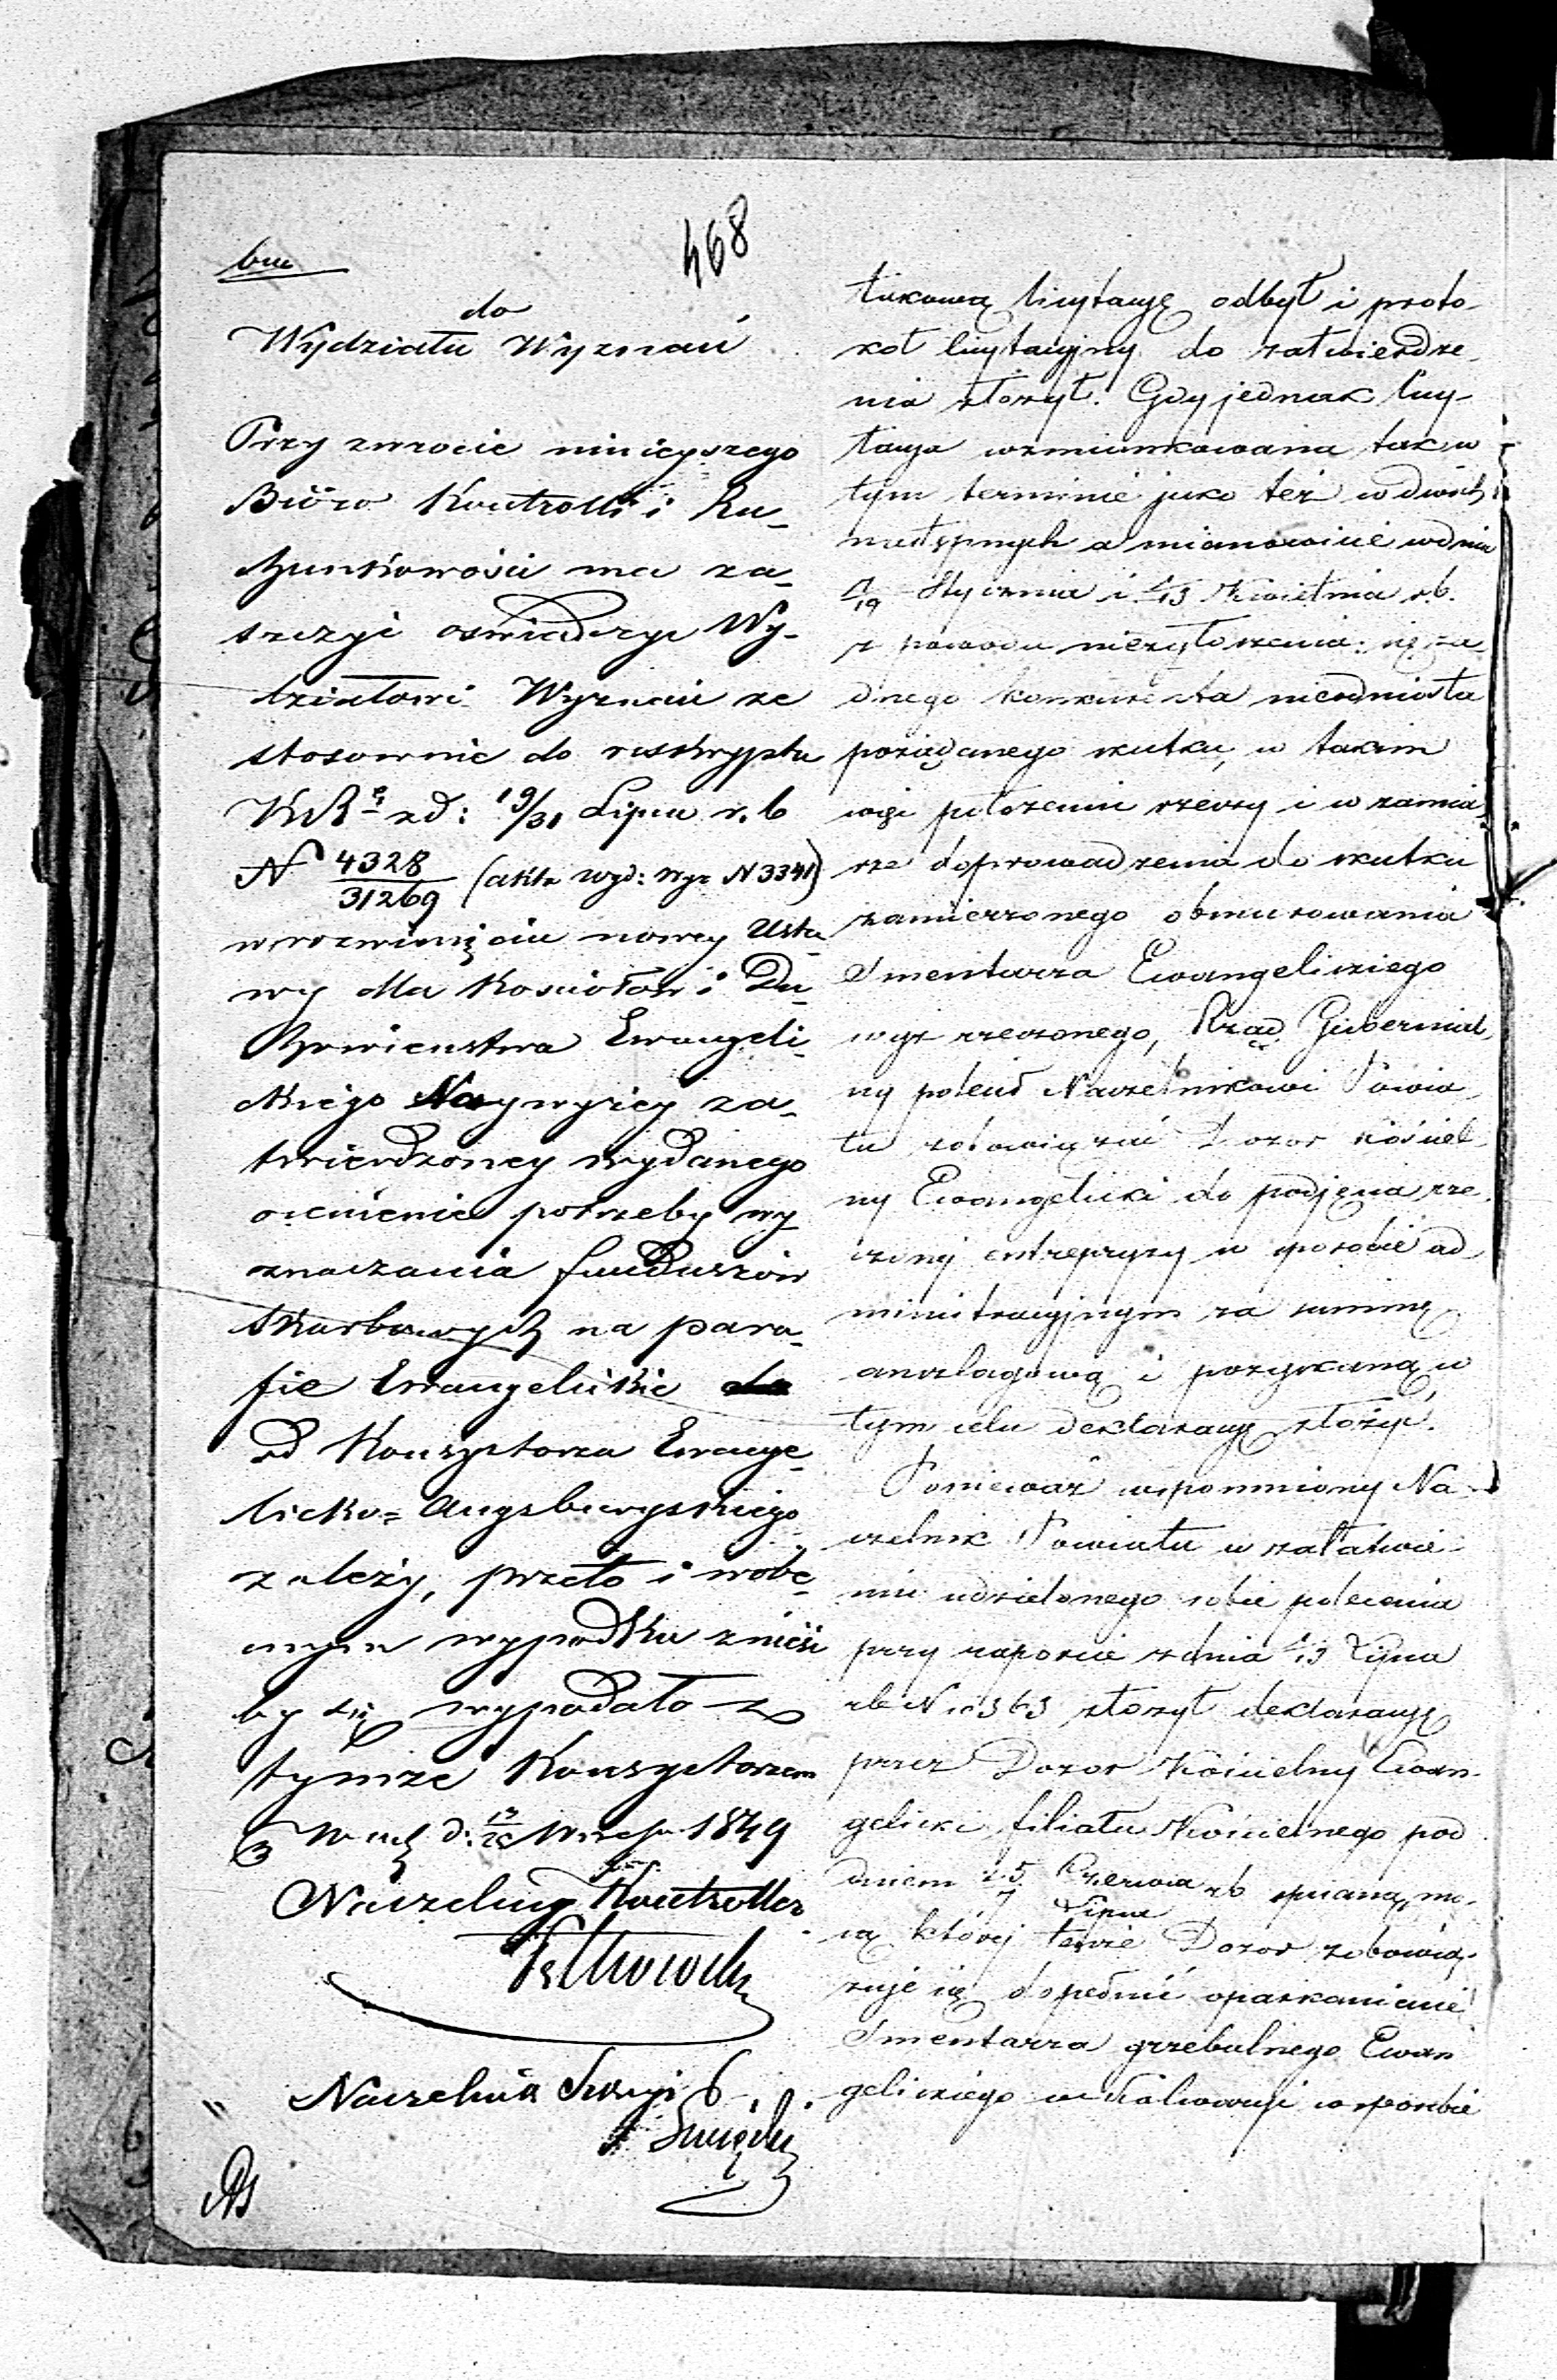 468
bm
do
Wydziału Wyznań
Przy zwrocie ninieyszego
Biuro Kontrolli i Ra-
chunkowości ma za-
szczyt oświadczyć Wy-
działowi Wyznań że
stosownie do reskryptu
KRS z d: 19/31 Lipca r. b
N 4328/31269 (akta wyd: wyz N 3341)
w rozwinięciu nowey Usta
wy dla Kościołów i Du-
chowieństwa Ewangeli-
ckiego Naywyżey za-
twierdzoney wydanego
ocenienie potrzeby wy
znaczania funduszów
Skarbowych na para-
fie Ewangelickie
od Konsystorza Ewange-
licko=Augsburgskiego
zależy, przeto i w obe-
cnym wypadku znieść
by się wypadało z
tymże Konsystorzem
W d: Wrześn 1849
Naczelny Kontroller
Naczelnik Sekcyi
tukową licytacyę odbył i proto-
koł licytacyjny do zatwierdze-
nia złożył. Gdy jednak licy-
tacya wzmiankowana tak w
tym terminie jako też w dwóch
następnych a mianowicie w dniu
7/19 Stycznia i 1/13 Kwietnia r.b.
z powodu niezgłoszenia się ża-
dnego konkurenta nieodniosła
pożądanego skutku, w takim
więc położeniu rzeczy i w zamia-
rze doprowadzenia do skutku
zamierzonego obmurowania
Smentarza Ewangelickiego
wyż rzeczonego, Rząd Gubernial-
ny polecił Naczelnikowi Powia-
tu zobowiązać Dozor Kościel-
ny Ewangelicki do podjęcia rze-
czonej entrepryzy w sposobie ad-
ministracyjnym za summę
anszlagową i pozyskaną w
tym celu deklaracyę złożyć.
Ponieważ wspomniony Na-
czelnik Powiatu w załatwie-
niu udzielonego sobie polecenia
przy raporcie z dnia 1/13 Lipca
rb N złożył deklaracyę
przez Dozor Kościelny Ewan-
gelicki filiału Kościelnego pod
dniem 25 Czerwca/7 Lipca rb spisaną, mo-
cą której tenże Dozor zobowią-
zuje się dopełnić oparkanienie
Smentarza grzebalnego Ewan
gelickiego w Kalwaryi w sposobie